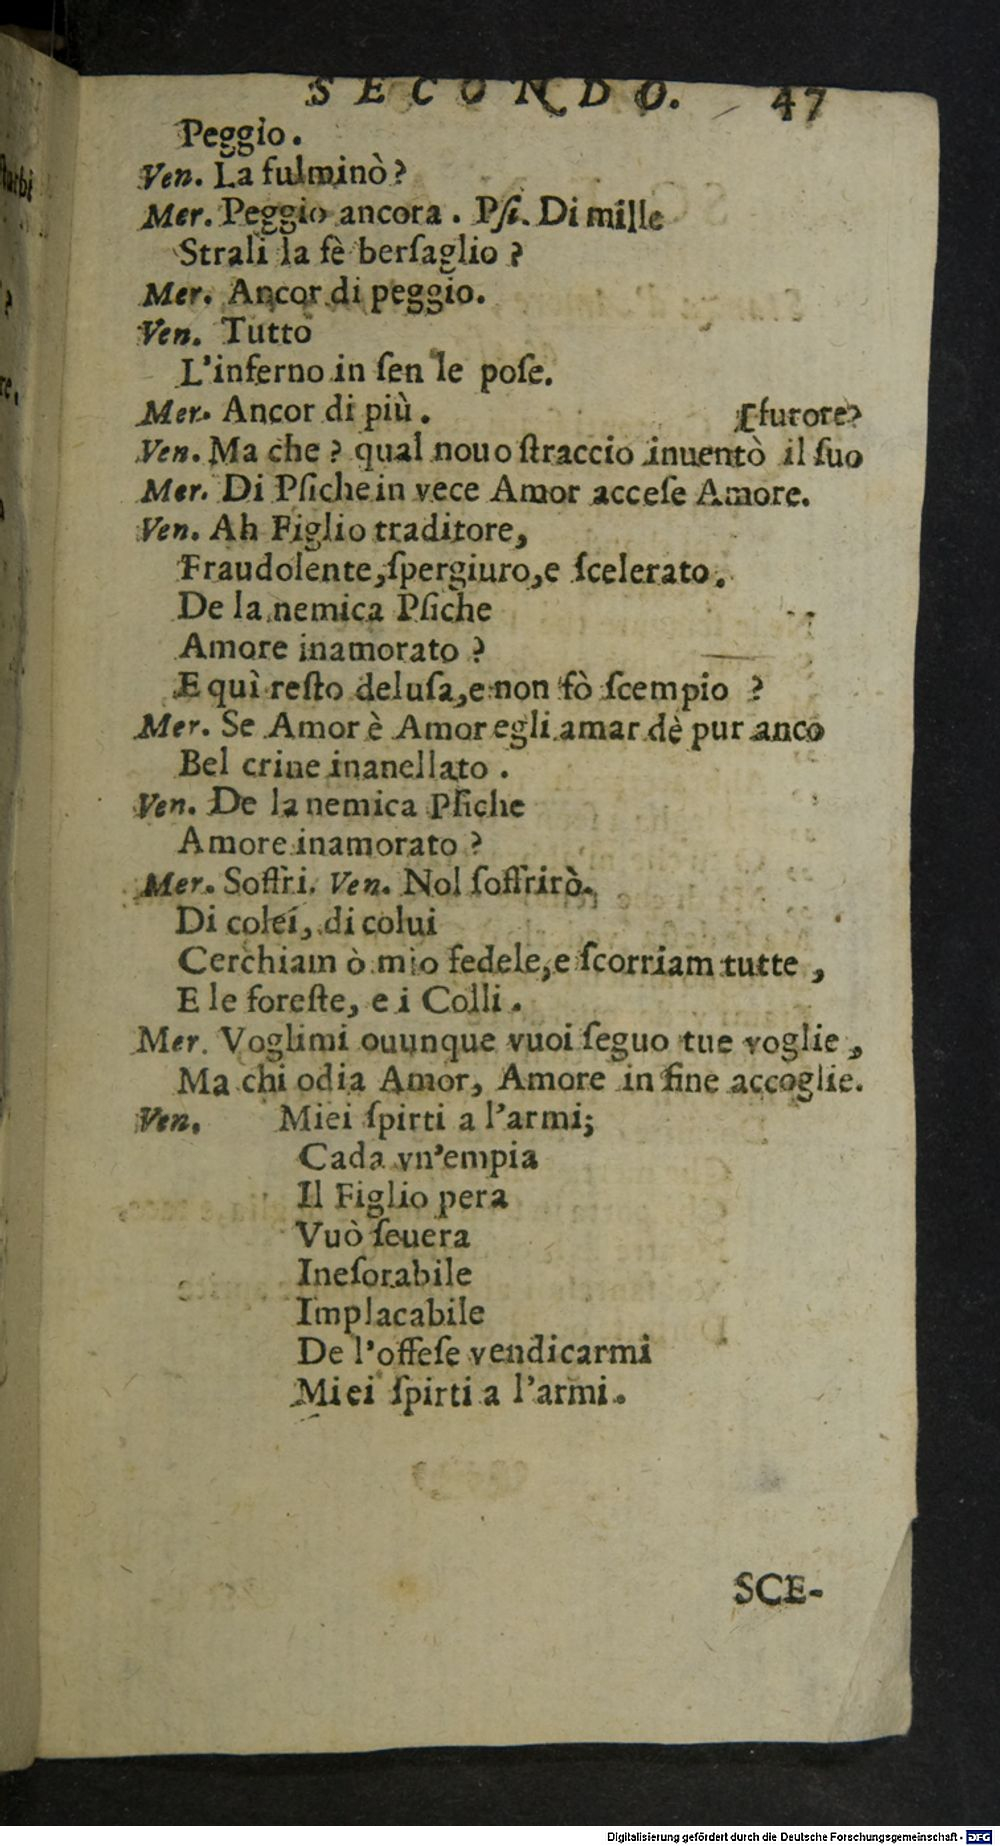 SECONDO. 47
Peggio.
Ven. La fulminò?
Mer. Peggio ancora. Pſi. Di mille
Strali la fè berſaglio?
Mer. Ancor di peggio.
Ven. Tutto
L'inferno in ſen le poſe.
Mer. Ancor di più. [furore?
Ven. Ma che? qual nouo ſtraccio inuentò il ſuo
Mer. Di Pſiche in vece Amor acceſe Amore.
Ven. Ah Figlio traditore,
Fraudolente, ſpergiuro, e ſcelerato.
De la nemica Pſiche
Amore inamorato?
E quì reſto deluſa, e non fò ſcempio?
Mer. Se Amor è Amor egli amar dè pur anco
Bel crine inanellato.
Ven. De la nemica Pſiche
Amore inamorato?
Mer. Soffri. Ven. Nol ſoffrirò.
Di colei, di colui
Cerchiam ò mio fedele, e ſcorriam tutte,
E le foreſte, e i Colli.
Mer. Voglimi ouunque vuoi ſeguo tue voglie,
Ma chi odia Amor, Amore in fine accoglie.
Ven. Miei ſpirti a l'armi;
Cada vn'empia
Il Figlio pera
Vuò ſeuera
Ineſorabile
Implacabile
De l'offeſe vendicarmi
Miei ſpirti a l'armi.
SCE-
Digitalisierung gefördert durch die Deutsche Forschungsgemeinschaft - DFG